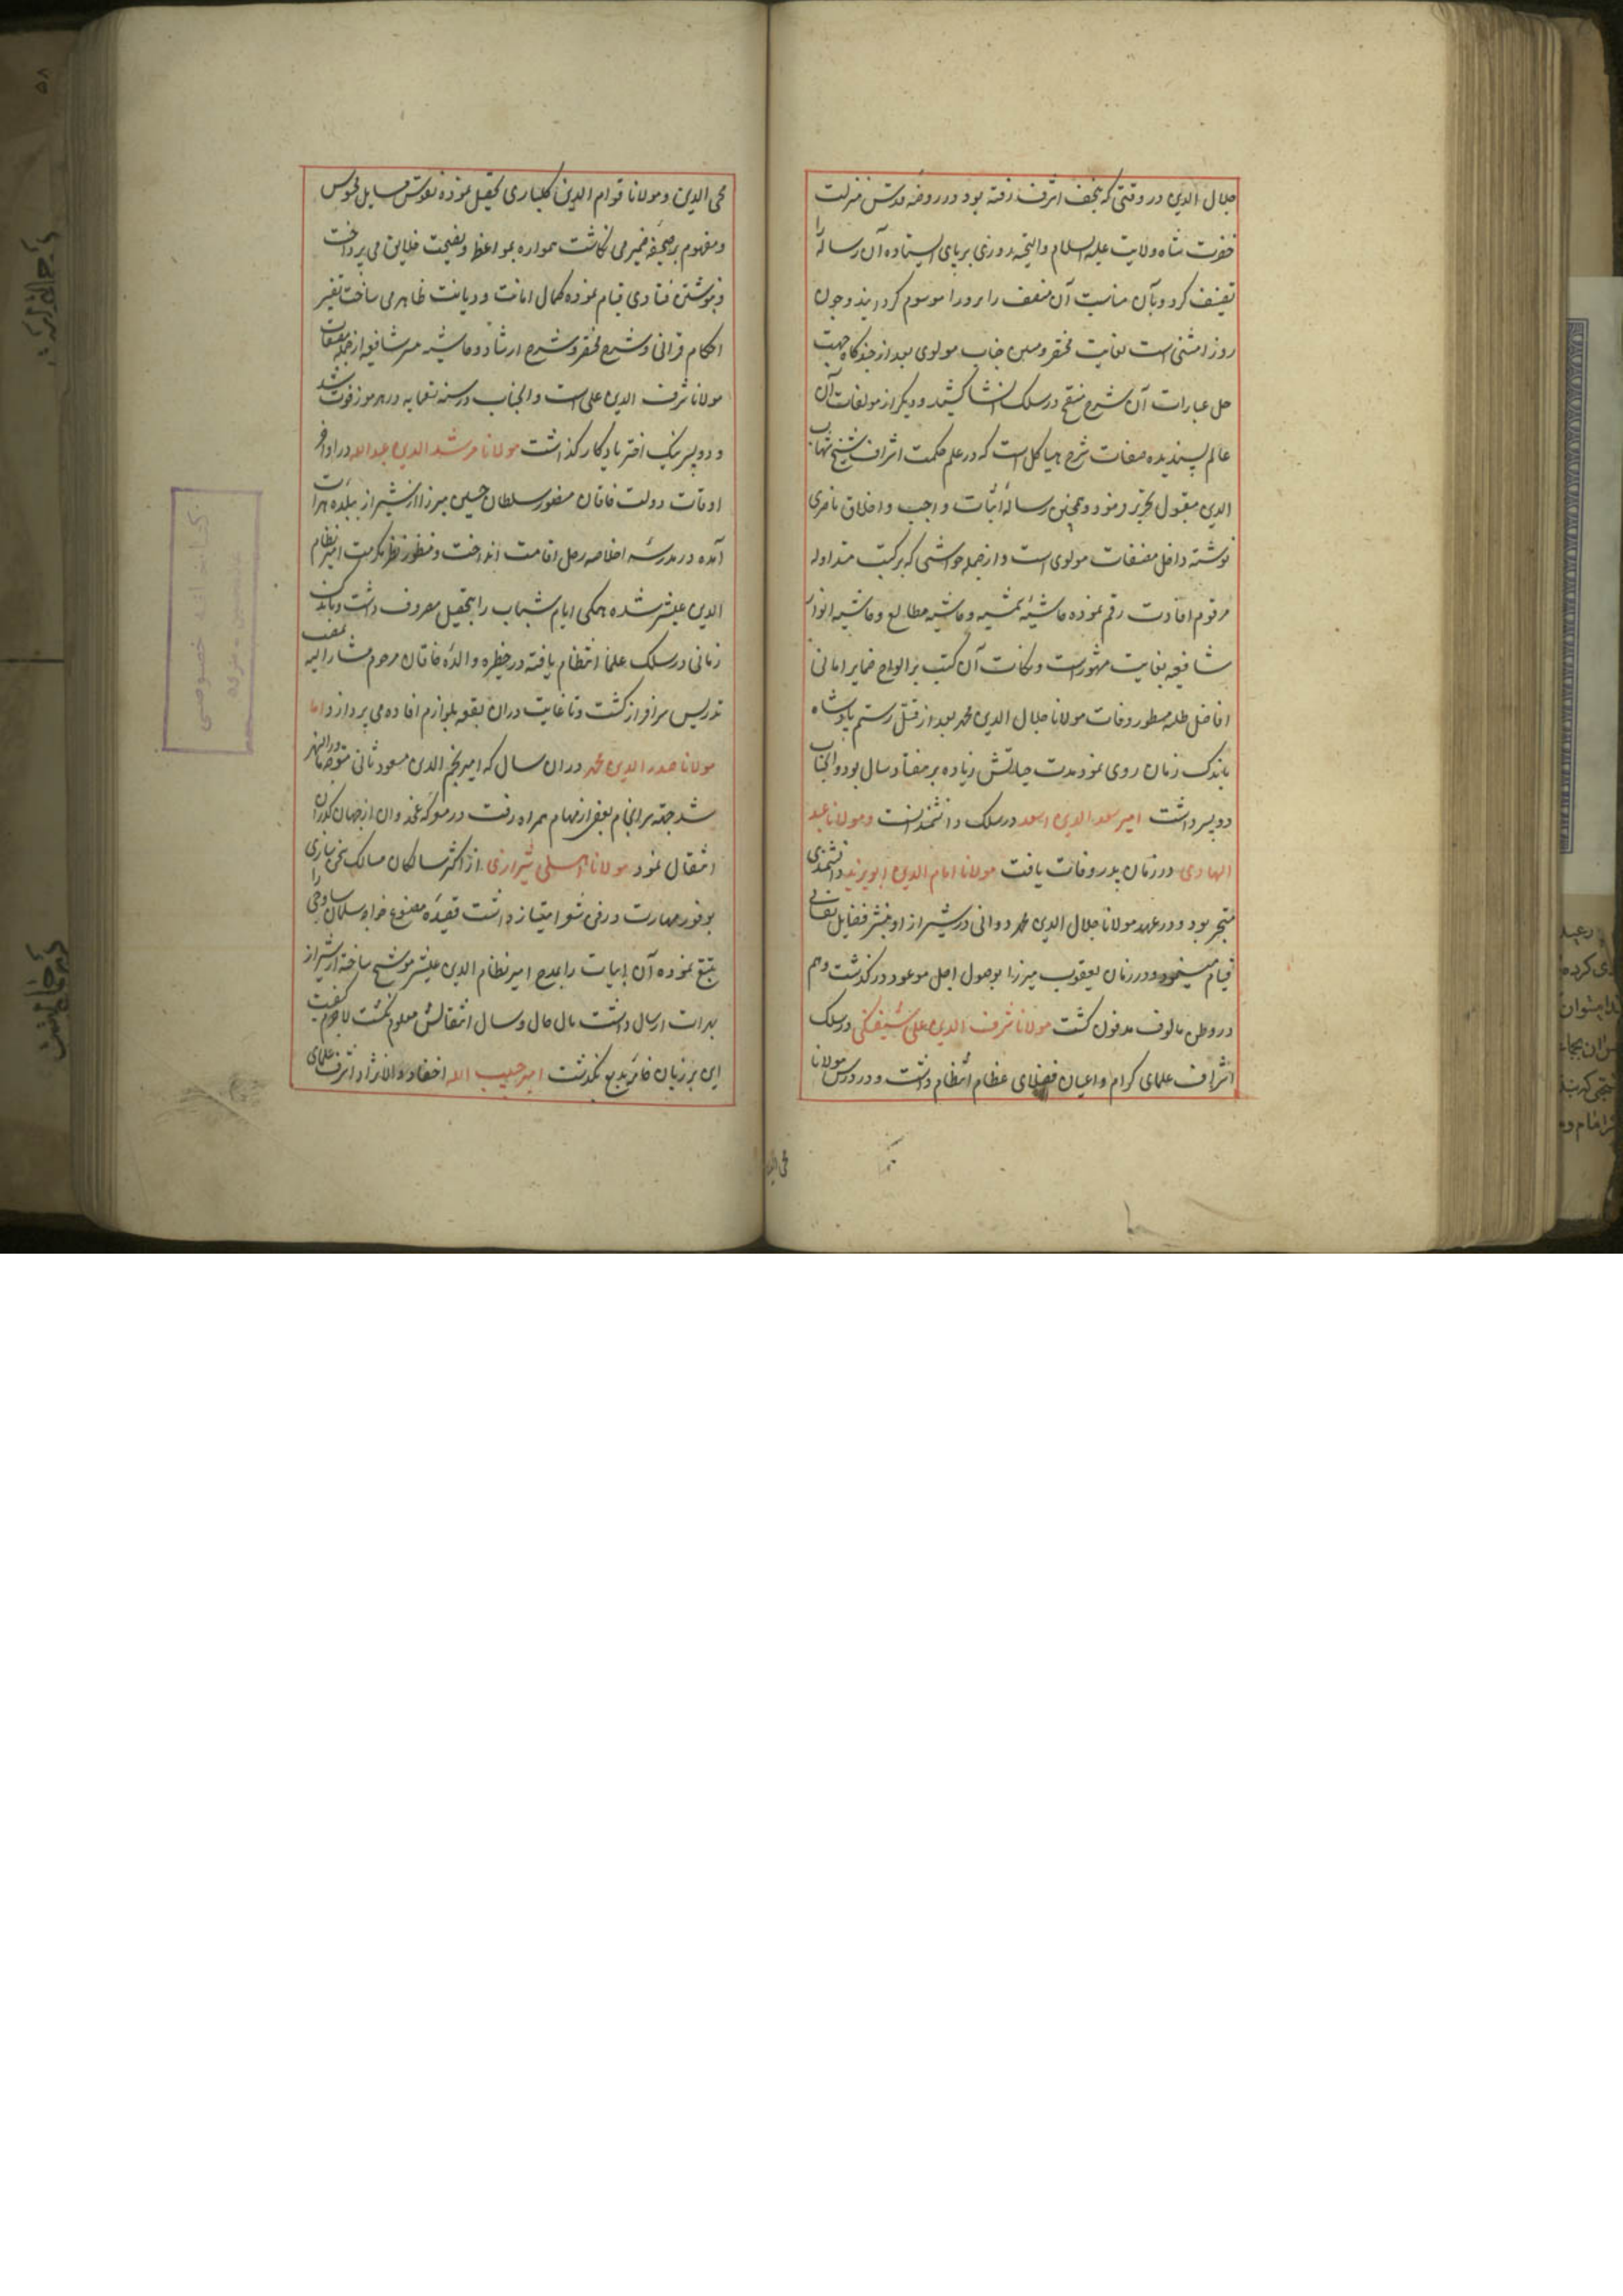 جلال الدین در وقتی که بنجف اشرف رفته بود و در روضه قدس منزلت
حضرت شاه ولایت علیه السلام والتحیه روزی برپای ایستاده آن رساله را
تصنیف کرد و بآن مناسبت آن مصنف را بزورا موسوم گردانید و چون
زورا مشتی است بغایت مختصر و متین جناب مولوی بعد از چندگاه جهت
حل عبارات آن شرح منقح در سلک انشا کشید و دیگر از مولفات آن
عالم پسندیده صفات شرح هیاکل است که در علم حکمت اشراف شیخ شهاب
الدین مقبول تحریر نمود و همچنین رساله اثبات واجب و اخلاق ناصری
نوشته داخل مصنفات مولوی است و از جمله حواشی که بر کتب متداوله
مرقوم افادت رقم نموده حاشیه شمسیه و حاشیه مطالع و حاشیه انوار
شافعیه بغایت مشهور است و نکات آن کتب بر الواح ضمایر امالی
افاضل طلبه مسطور وفات مولانا جلال الدین محمد بعد از قتل رستم پادشاه
باندک زمان روی نمود مدت حیاتش زیاده بر هفتاد سال بود و آنجناب
دو پسر داشت امیر سعد الدین اسعد در سلک دانشمندانست و مولانا عبد
الهادی در زمان پدر وفات یافت مولانا امام الدین ابویزید دانشمندی
متبحر بود و در عهد مولانا جلال الدین محمد دوانی در شیراز او بنشر فضایل نفسانی
قیام مینمود و در زمان یعقوب میرزا بوصول اجل موعود درگذشت و هم
در وطن مالوف مدفون گشت مولانا شرف الدین علی شیفتکی در سلک
اشراف علمای کرام و اعیان فضلای عظام انتظام داشت و در درس مولانا
محی الدین
محی الدین و مولانا قوام الدین کلباری تحصیل نموده نقوش مسایل محسوس
و مفهوم بر صحیفه ضمیر می نگاشت همواره بمواعظ و نصیحت خلایق می پرداخت
و بنوشتن فتاوی قیام نموده کمال امانت و دیانت ظاهر می ساخت تفسیر
احکام قرانی و شرح مختصر و شرح ارشاد و حاشیه شافعیه از جمله مصنفات
مولانا شرف الدین علی است و آنجناب در سنه تسعمایه در هرموز فوت شد
و دو پسر نیک اختر یادگار گذاشت مولانا مرشد الدین عبدالله در اواخر
اوقات دولت خاقان منصور سلطان حسین میرزا از شیراز ببلده هرات
آمده در مدرسه اخلاصیه رحل اقامت انداخت و منظور نظر مکرمت امیر نظام
الدین علیشیر شده همگی ایام شباب را بتحصیل مصروف داشت و باندک
زمانی در سلک علما انتظام یافته در حظیره والده خاقان مرحوم مشار الیه بمنصب
تدریس سرافراز گشت و تا غایت دران بقعه بلوازم افاده می پردازد اما
مولانا صدر الدین محمد دران سال که امیر نجم الدین مسعود ثانی متوجه ماوراءالنهر
شد جهته سرانجام بعضی از مهام همراه رفت در معرکه غجدوان از جهان گذران
انتقال نمود مولانا اهلی شیرازی از اکثر سالکان مسالک سخن سازی
بوفور مهارت در فن شعر امتیاز داشت قصیده مصنوع خواجه سلمان ساوجی را
تتبع نموده آن ابیات را بمدح امیر نظام الدین علیشیر موشح ساخته از شیراز
بهرات ارسال داشت مال حال و سال انتقالش معلوم نگشت لاجرم کیفیت
این بر زبان خامه بدیع نگذشت امیر حبیب الله احفاد والانژاد اشرف علمای
کتابخانه خصوصی